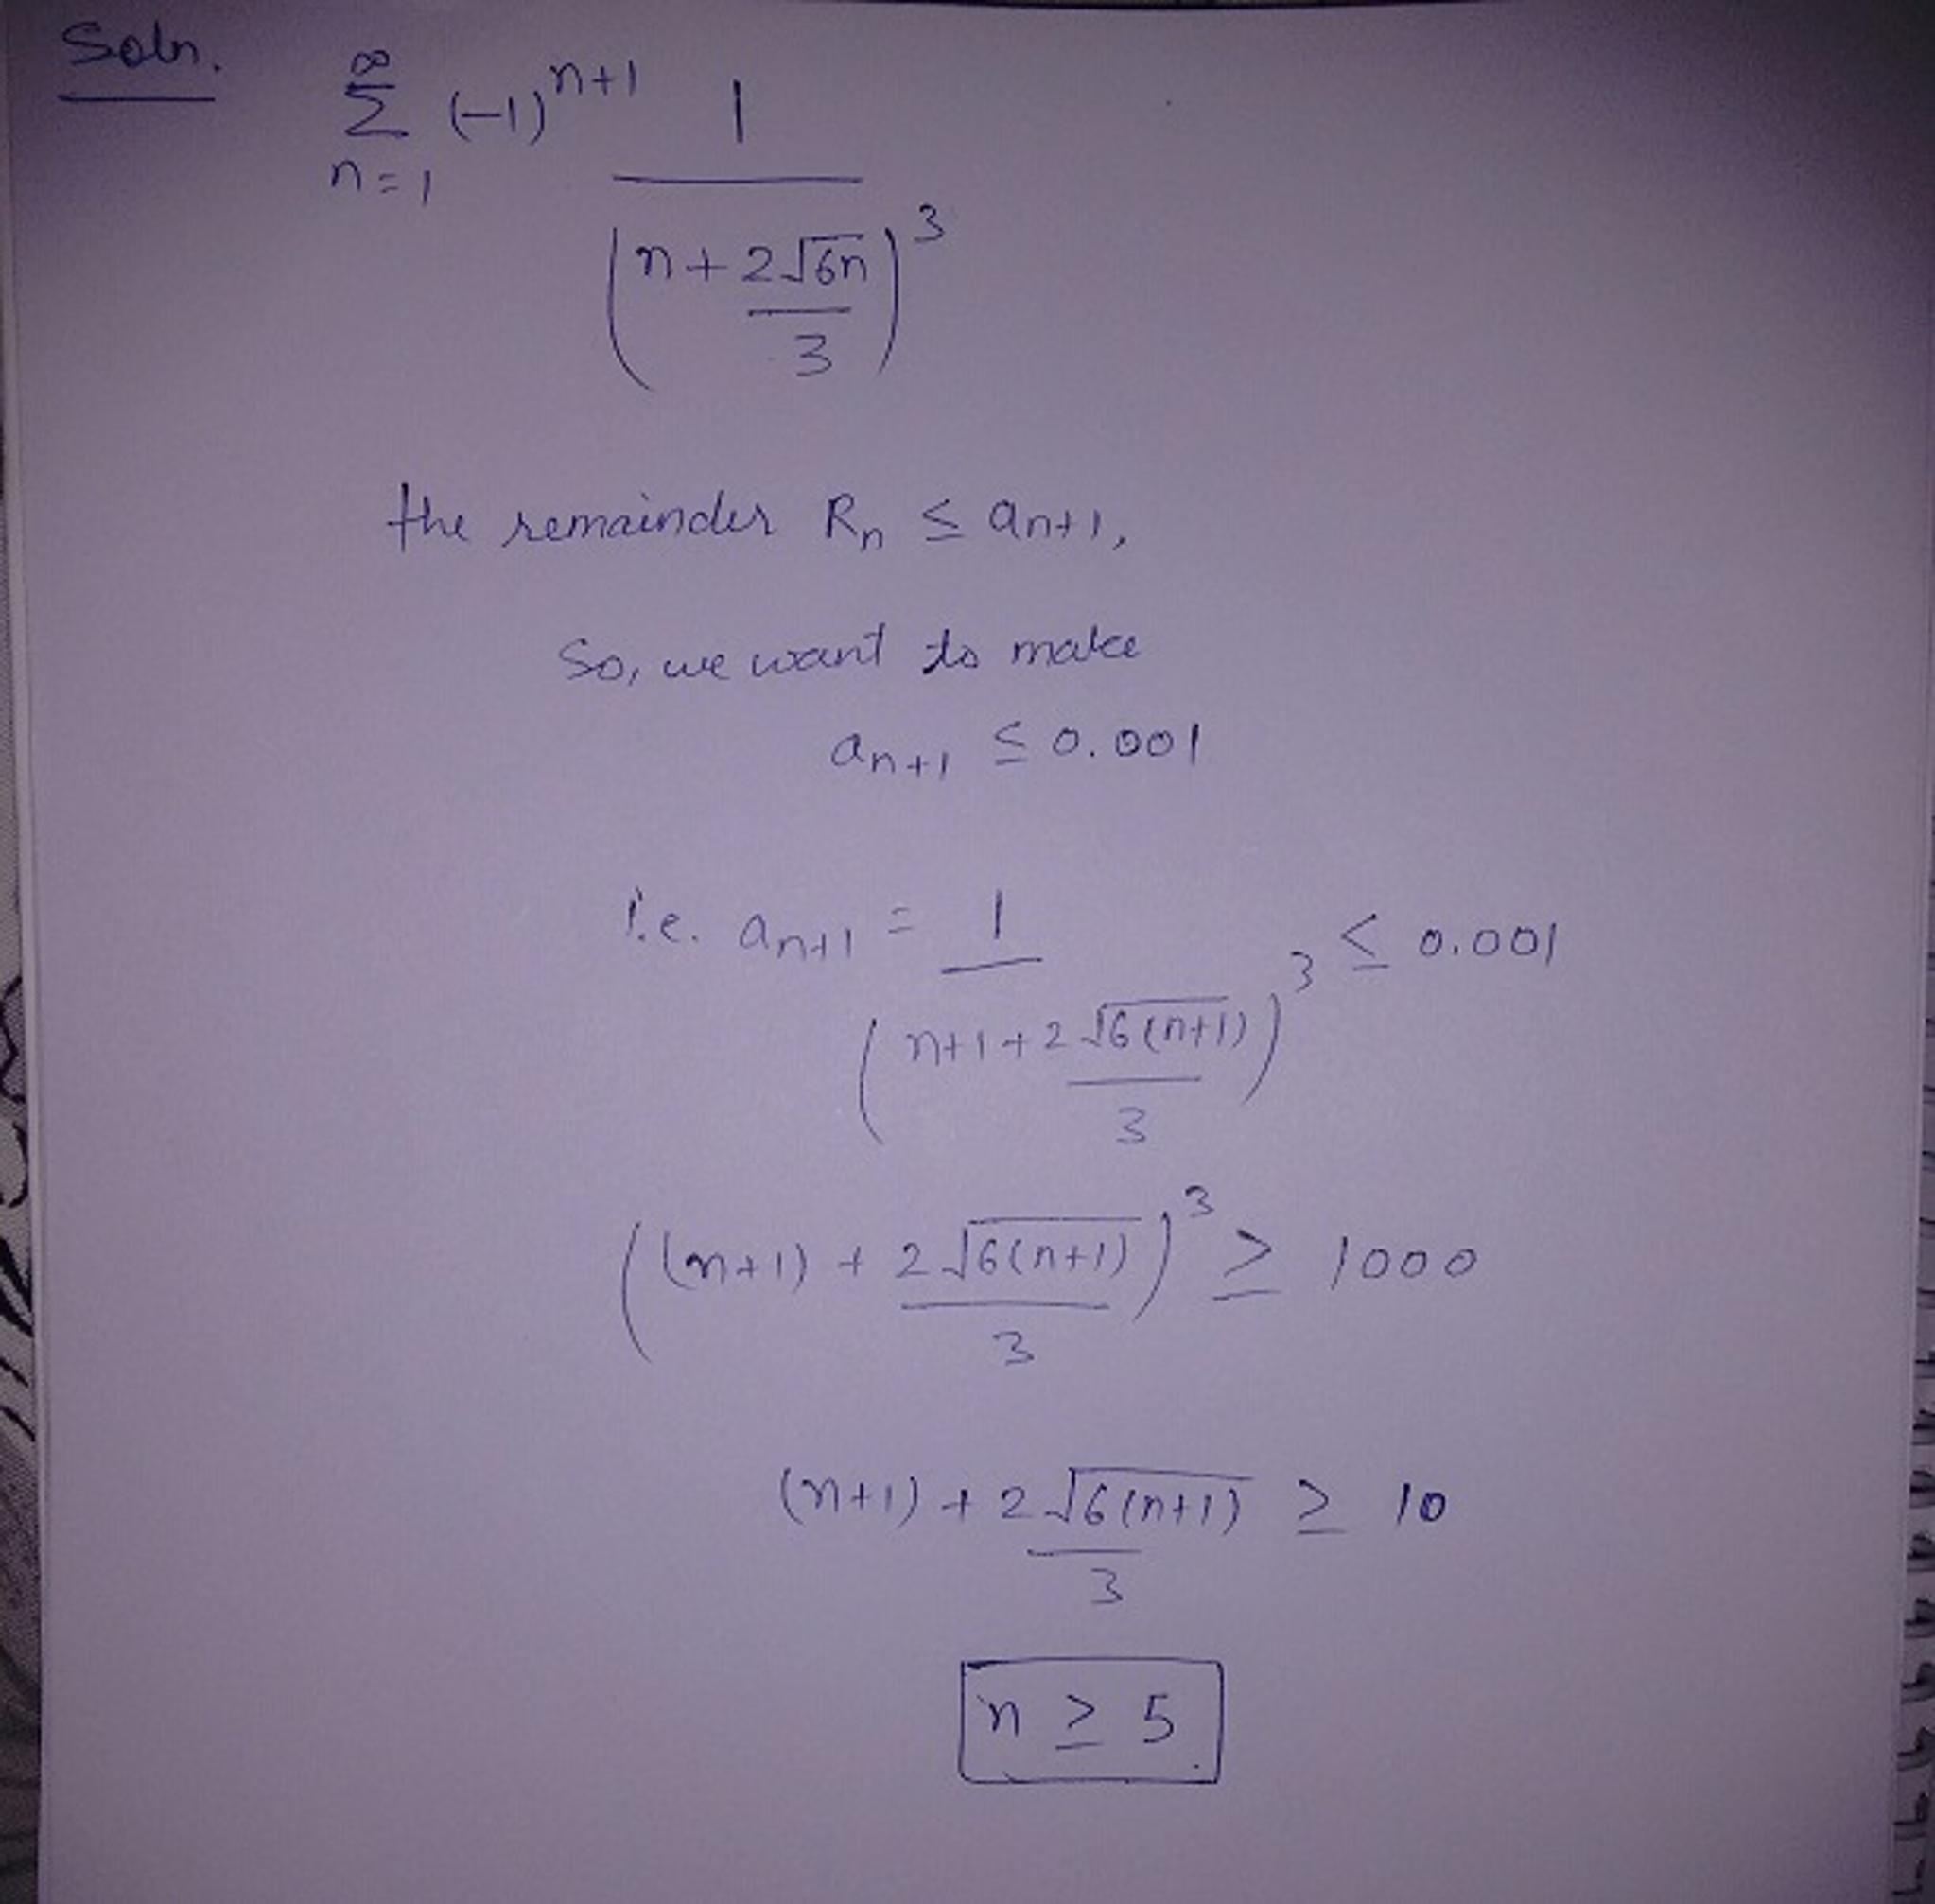 Soln.
∞
Σ (-1)^{n+1} 1
n=1
(n + 2√6n / 3)^3
the remainder R_n ≤ a_{n+1},
So, we want to make
a_{n+1} ≤ 0.001
i.e. a_{n+1} = 1 / (n+1+2√6(n+1) / 3)^3 ≤ 0.001
((n+1) + 2√6(n+1) / 3)^3 ≥ 1000
(n+1) + 2√6(n+1) / 3 ≥ 10
n ≥ 5